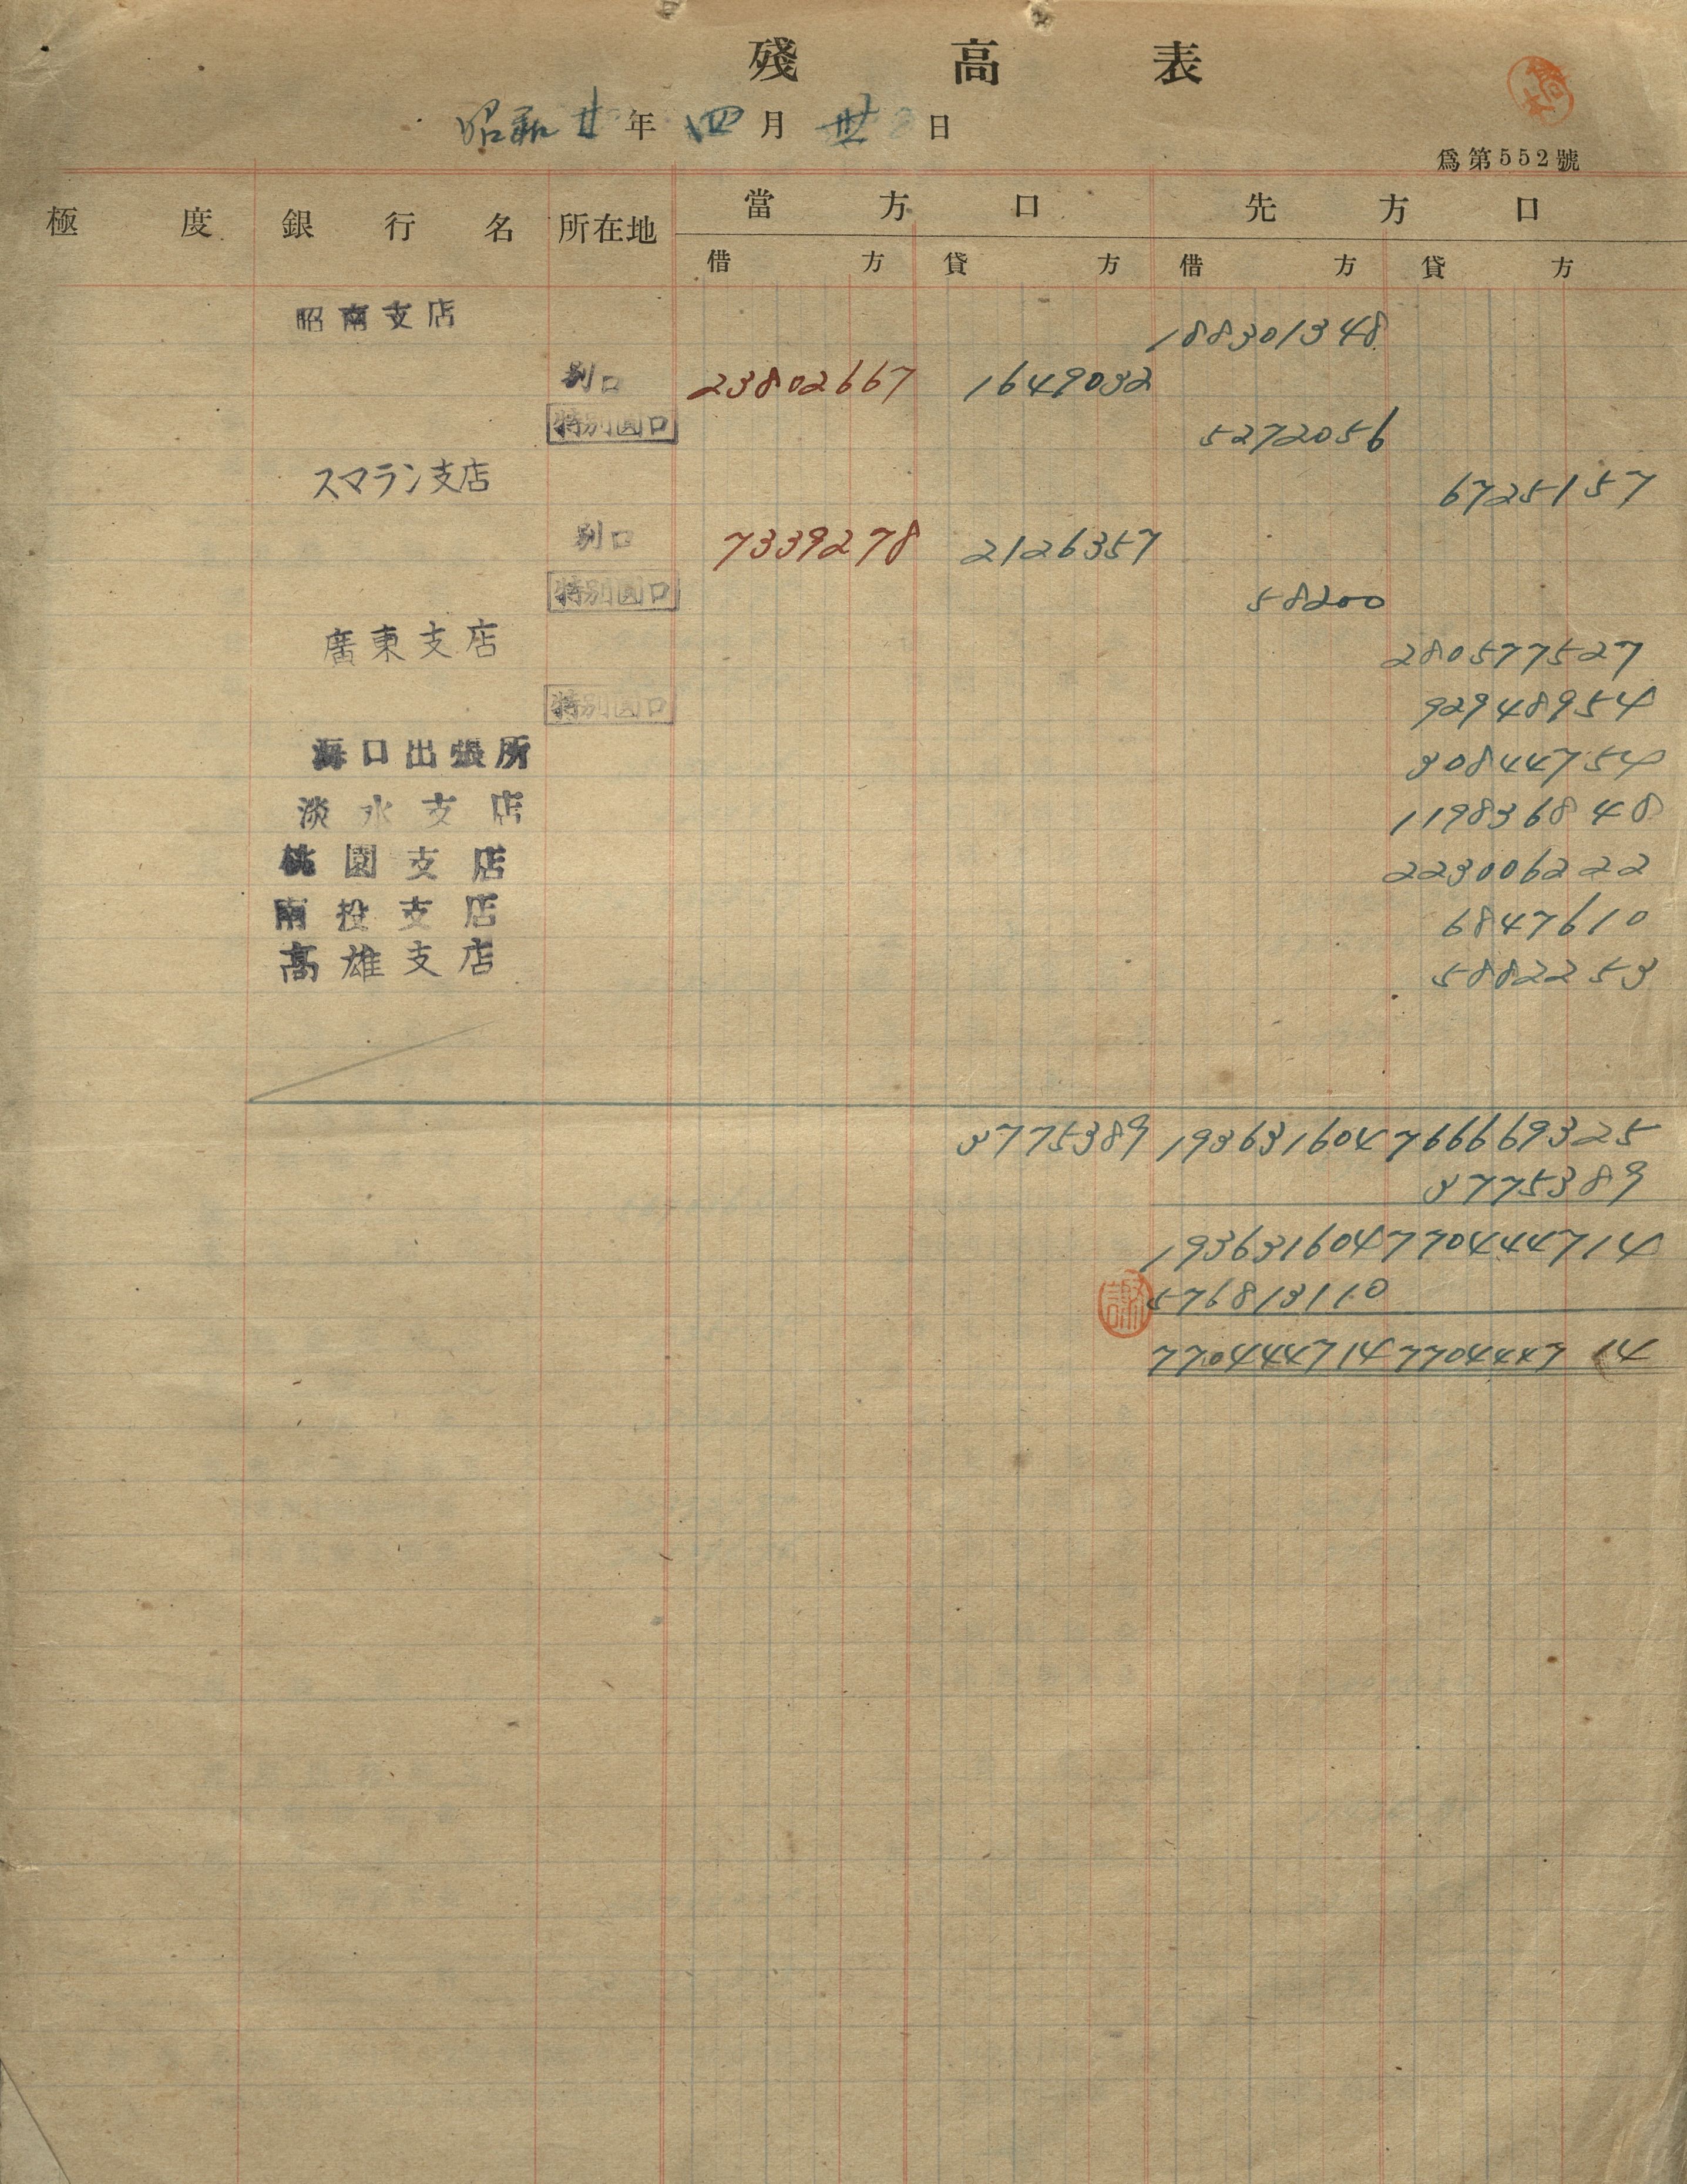 殘高表
昭和廿年四月卅日
爲第552號
極度 銀行名 所在地 當方口 先方口
借方 貸方 借方 貸方
昭南支店 188301348
別口 23802667 1649032
特別圓口 5272056
スマラン支店 6725157
別口 7339278 2126357
特別圓口 58200
廣東支店 280577527
特別圓口 92948954
海口出張所 30844754
淡水支店 119836848
桃園支店 223006222
南投支店 6847610
高雄支店 5882253
3775389 193631604 766669325
3775389
193631604 770444714
謝 576813110
770444714 770444714